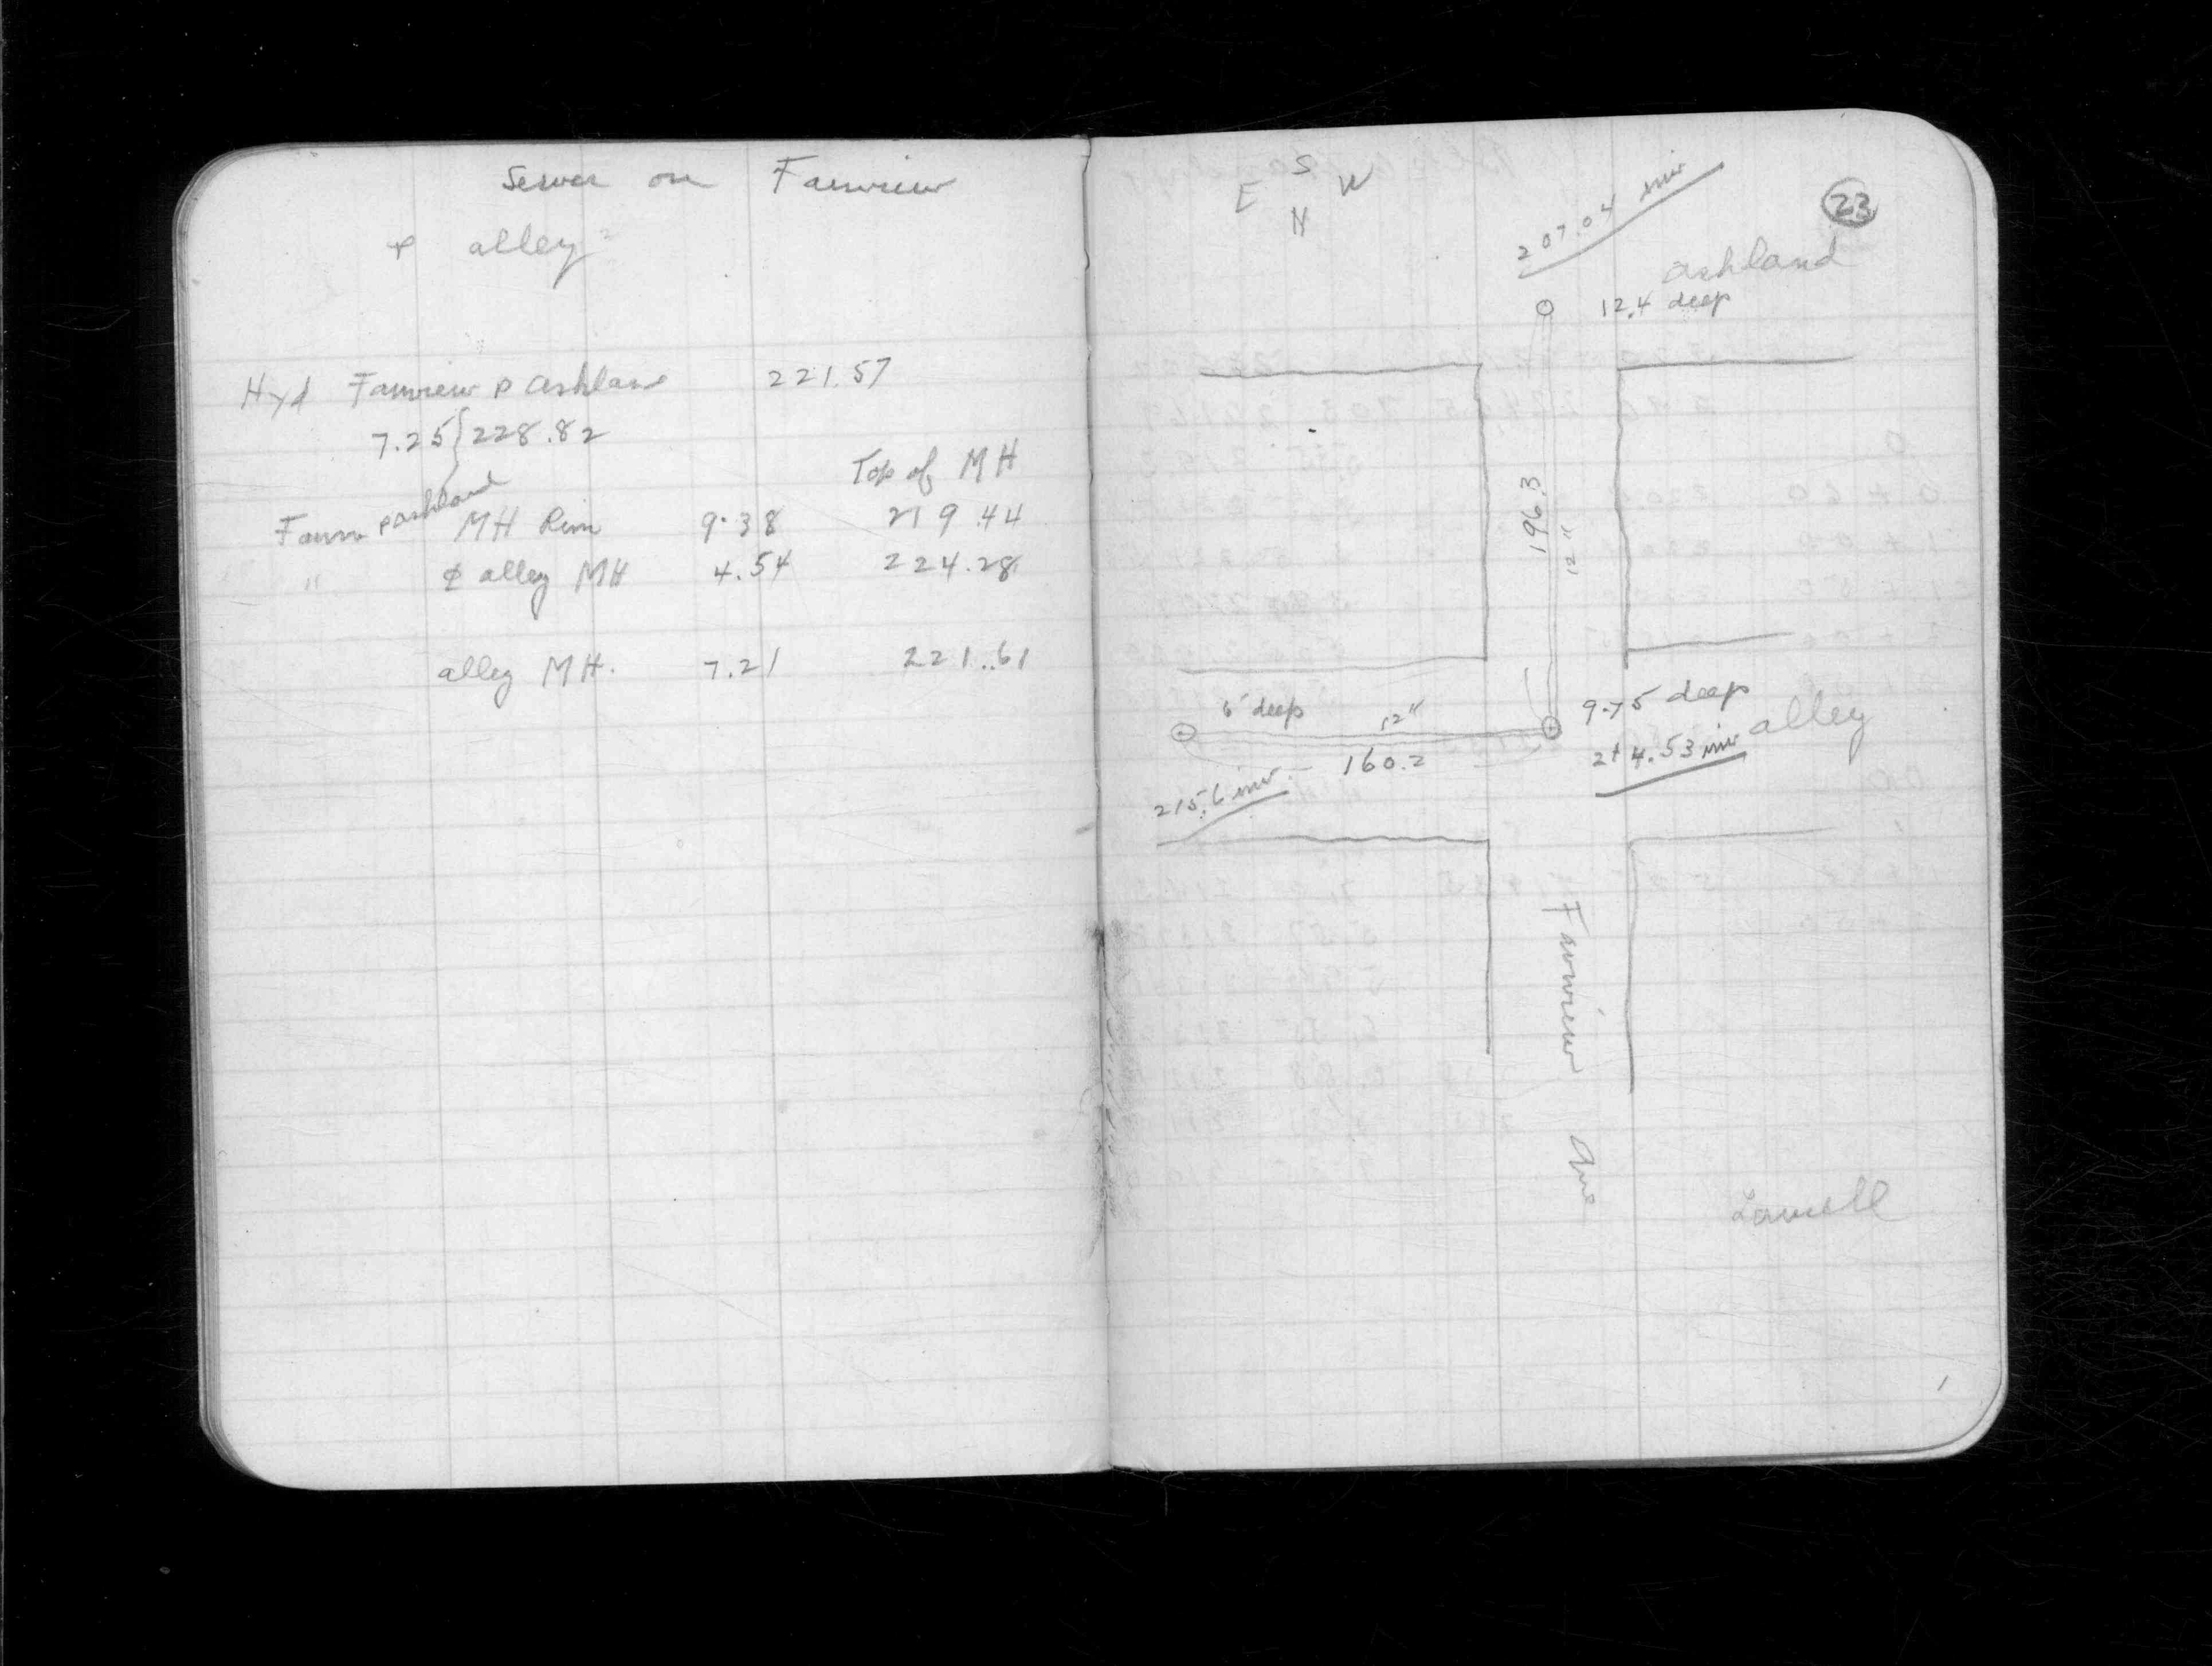 Sewer on Fairview
& alley
Hyd Fairview & Ashland 221.57
7.25 } 228.82
Top of MH
Fairv & Ashland MH Rim 9.38 219.44
" & alley MH 4.54 224.28
alley MH. 7.21 221.61
23
S
E W
N
207.04 inv
Ashland
12.4 deep
196.3
12"
6' deep
12"
160.2
215.6 inv.
9.75 deep
214.53 inv
alley
Fairview Ave
Lowell